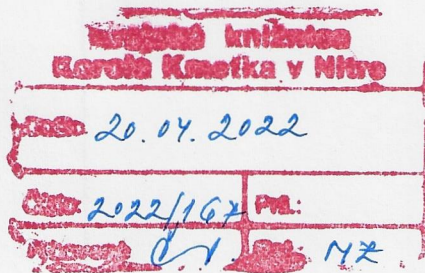 Krajská knižnica
Karola Kmeťka v Nitre
Došlo: 20.04.2022
Číslo: 2022/167 Príl.: